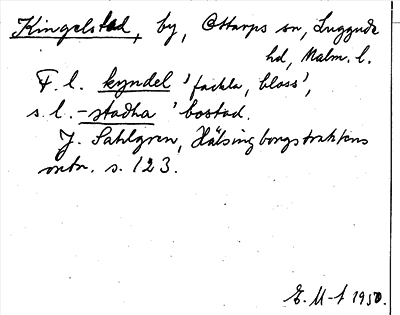 Kingelstad, by, Ottarps sn, Luggude
hd, Malm. l.
F. l. kyndel 'fackla, bloss',
s. l. -stadha 'bostad.
J. Sahlgren, Hälsingborgstraktens
ortn. s. 123.
E. M-t 1950.